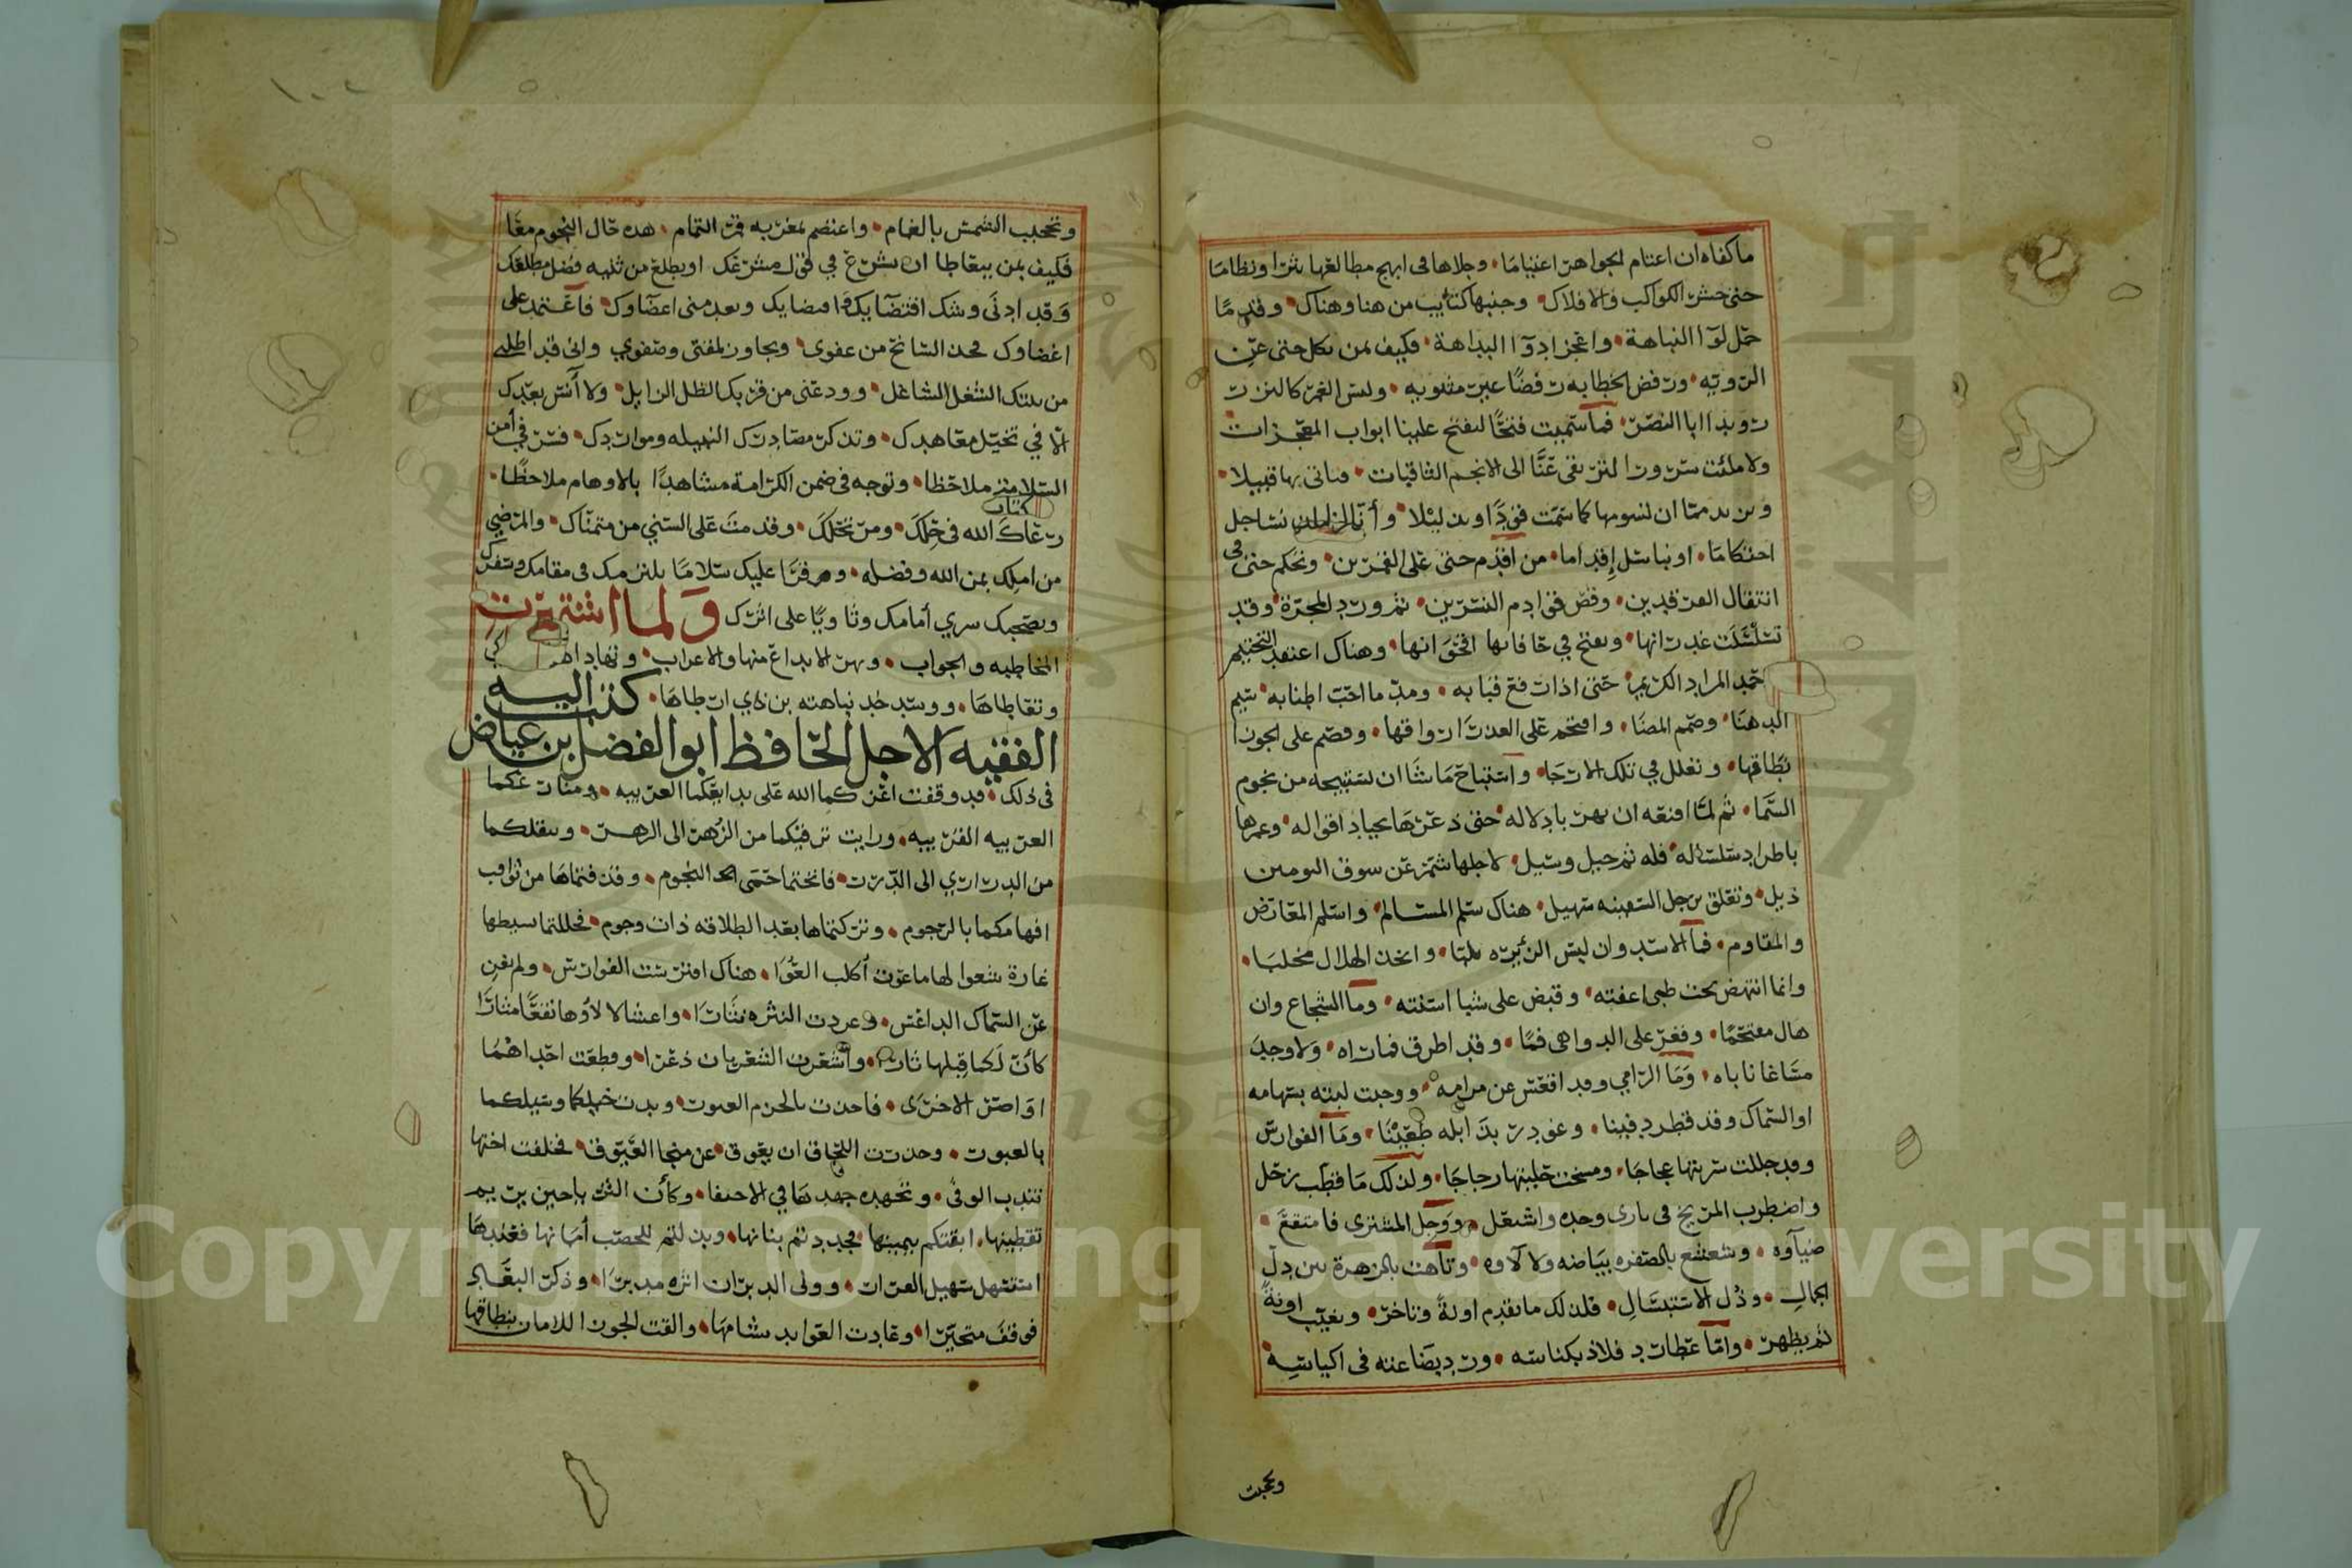 ما كفاه ان اعتام الجواهر اعتياما وجلاها فى ابهج مطالعها نثرا ونظاما
حتى حشر الكواكب والافلاك وجنبها كتايب من هنا وهناك وقدما
حمل لوآ النباهة واعجز ادوآ البداهة فكيف بمن بكل حتى عن
الرويه ورفض الخطابه رفضا غير مثنويه وليس الغمر كالنزر
رويدا ابا النصر فما سميت فتحا لتفتح علينا ابواب المعجزات
ولا ملئت سرورا لترتقى عنا الى الانجم الثاقبات فتاتى بها قبيلا
وتريد منا ان نسومها كما سمت قودا او تذليلا وأنا لنا ان نساجل
احتكاما او نباسل إقداما من اقدم حتى على القمرين وتحكم حتى فى
انتقال الفرقدين وقص قوادم النسرين ثم ورد المجرة وقد
تسلسلت غدرانها وتفتح في حافاتها اقحوانها وهناك اعتقد التخييم
حمد المراد الكريم حتى اذا رفع قبابه ومد ما احب اطنابه سيم
الدهنا وصمم المضا واقتحم على العذرا رواقها وفصم على الجوزا
نطاقها وتغلل في تلك الارجا واستباح ما شا ان يستبيحه من نجوم
السما ثم لما اقنعه ان بهر بادلاله حتى ذعرها بجياد اقواله وغمرها
باطراد سلساله فله ثم جيل وسيل لاجلها شمر عن سوق التومين
ذيل وتعلق برجل السفينه سهيل هناك سلم المسالم واستلم المعارض
والمقاوم فما الاسد وان لبس الزبره يلبا واتخذ الهلال مخلبا
وانما انتهض تحت ظبى اعنته وقبض على شبا اسنته وما الشجاع وان
هال مقتحما وفغر على الدواهى فما وقد اطرق فما راه ولا وجد
مساغا ناباه وما الرامي وقد اقعس عن مرامه ووجت لبته بسهامه
او السماك وقد قطر دفينا وغودر بذابله طعينا وما الفوارس
وقد جللت سربتها عجاجا ومسخت حلبتها زجاجا ولذلك ما قطب زحل
واضطرب المريخ فى نارى وجده واشتعل ووجل المشترى فامتقع
ضيآوه وشعشع بالصفره بياضه ولا لآوه وتآهت بالزهرة بين دل
الجمال وذل الاستبسال فلذلك ما تقدم اونة وتاخر وتغيب اونة
ثم تظهر وامآ عطارد فلاذ بكناسه ورد بضاعته فى اكياسه
وتحجبت
١٠٢
وتحجبت الشمس بالغمام واعتصم بمغربه قمر التمام هذه حال النجوم معنا
فكيف بمن يتعاطا ان يشرع في قول مشرعك او يطلع من ثنيه فضل مطلعك
وقد ادنى وشك اقتضايك امضايك وبعد منى اعضاوك فاعتمد على
اغضاوك فخذ السانح من عفوى وتجاوز لمقتى وصفوي وانى قد اطلب
من بينك الشغل الشاغل وودعنى من قربك الظل الزايل ولا أنس بعدك
الا في تخيل معاهدك وتذكر مصادرك النبيله ومواردك فسر في أمن
السلامه ملاحظا وتوجه فى ضمن الكرامة مشاهدا بالاوهام ملاحظا
رعاك الله فى حلك ومرتحلك وقدمت على السني من متمناك والمرضي
من املك بمن الله وفضله ومرقرا عليك سلاما يلتزمك فى مقامك وسفرك
ويصحبك سري أمامك وثاويا على اثرك ولما اشتهرت
المخاطبه والجواب وبهر الابداع منها والاعراب وتهاداها
وتعاطاها ووسد خد نباهته من ذي ارطاها كتب اليه
الفقيه الاجل الحافظ ابو الفضل بن عياض
فى ذلك قد وقفت اعزكما الله على بدايعكما العربيه ومنازعكما
العربيه القريبيه ورايت ترقيكما من الزهر الى الزهر وتنقلكما
من الدرارى الى الدرر فابحتما حمى النجوم وقذفتماها من ثواقب
افهامكما بالرجوم وتركتماها بعد الطلاقه ذات وجوم فحللتما بسيطها
غارة شعوا لها ما عوت أكلب العوا هناك افترست الفوارس ولم تغن
عن السماك الداعس وغودرت النثره نثارا واعشا لالاوها نقعا مثارا
كأن لكما قبلها ثارا وأشعرت الشعريان ذعرا وقطعت احداهما
اواصر الاخرى فاخذت بالحزم العبور وبدت خيلكما وسيلكما
بالعبور وحذرت اللحاق ان يعوق عن منجا العيوق فخلفت اختها
تندب الوفا وتجهد جهدها في الاختفا وكأن الثريا حين ثرتم
تقطينها اتقتكم بيمينها فجذذتم بنانها وبذلتم للخضيب أمانها فعندها
استسهل سهيل الفرار وولى الدبران اثره مدبرا وذكر البعاد
فوقف متحيرا وعادت العوايد بشامها والقت الجوزا للامان بنطاقها